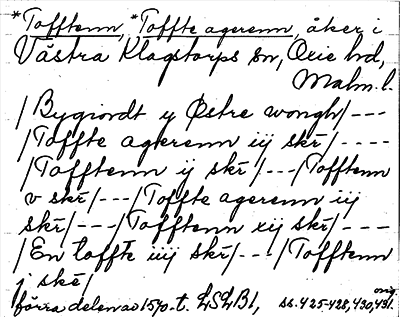 *Tofftenn, *Toffte agerenn, åker i
Västra Klagstorps sn, Oxie hd,
Malm. l.
/Bygiordt y Østre wongh/---
/Toffte agerenn iij skr̄/----
/Tofftenn ij skr̄/---/Tofftenn
v skr̄/---/Toffte agerenn iij
skr̄/---/Tofftenn xij skr̄/----
/En toffte iiij skr̄/---/Tofftenn
j skr̄/
förra delen av 1570-t. LSLB1, ss. 425-428, 430, 431.
orig.